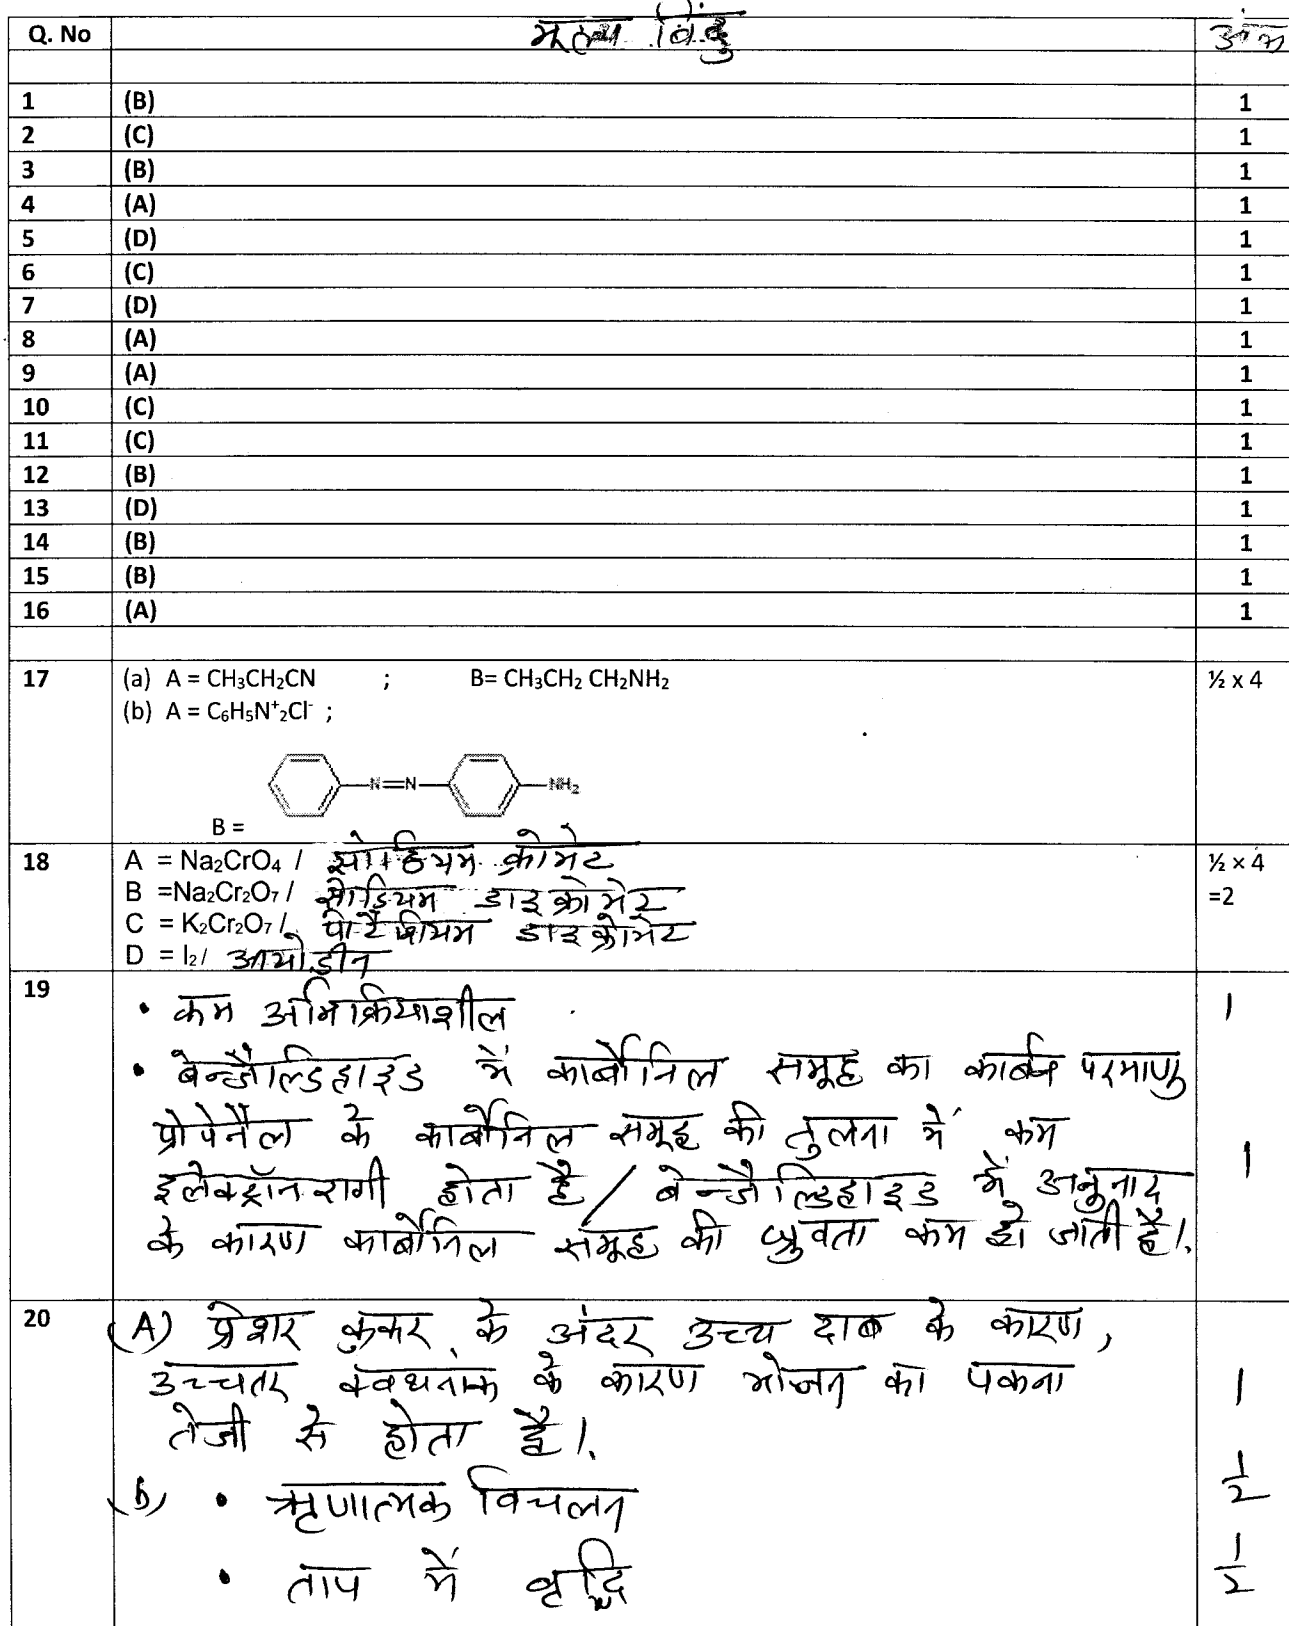 Q. No मूल्य बिंदु अंक
1 (B) 1
2 (C) 1
3 (B) 1
4 (A) 1
5 (D) 1
6 (C) 1
7 (D) 1
8 (A) 1
9 (A) 1
10 (C) 1
11 (C) 1
12 (B) 1
13 (D) 1
14 (B) 1
15 (B) 1
16 (A) 1
17 (a) A = CH₃CH₂CN ; B= CH₃CH₂ CH₂NH₂ ½ x 4
(b) A = C₆H₅N⁺₂Cl⁻ ;
N=N NH₂
B =
18 A = Na₂CrO₄ / सोडियम क्रोमेट ½ x 4
B =Na₂Cr₂O₇ / सोडियम डाइक्रोमेट =2
C = K₂Cr₂O₇ / पोटैशियम डाइक्रोमेट
D = I₂ / आयोडीन
19 • कम अभिक्रियाशील 1
• बेन्जैल्डिहाइड में कार्बोनिल समूह का कार्बन परमाणु
प्रोपेनैल के कार्बोनिल समूह की तुलना में कम
इलेक्ट्रॉनरागी होता है / बेन्जैल्डिहाइड में अनुनाद 1
के कारण कार्बोनिल समूह की ध्रुवता कम हो जाती है।
20 (A) प्रेशर कुकर के अंदर उच्च दाब के कारण,
उच्चतर क्वथनांक के कारण भोजन का पकना 1
तेजी से होता है।
(b) • ऋणात्मक विचलन ½
• ताप में वृद्धि ½